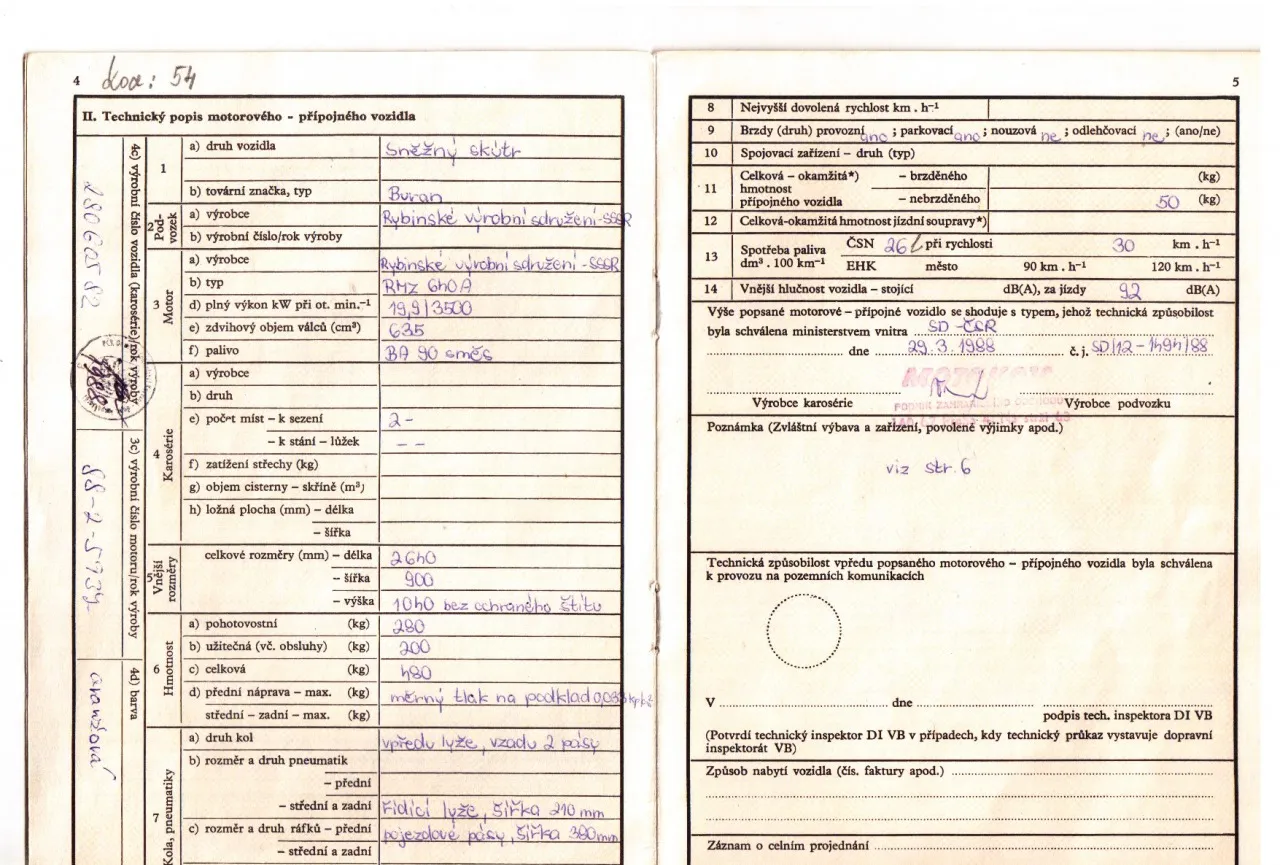 4
54
II. Technický popis motorového – přípojného vozidla
4c) výrobní číslo vozidla (karosérie)/rok výroby
3c) výrobní číslo motoru/rok výroby
4d) barva
oranžová
1
a) druh vozidla
Sněžný skútr
b) tovární značka, typ
Buran
2 Pod-
vozek
a) výrobce
Rybinské výrobní sdružení-SSSR
b) výrobní číslo/rok výroby
3
Motor
a) výrobce
Rybinské výrobní sdružení-SSSR
b) typ
RMZ 640A
d) plný výkon kW při ot. min.⁻¹
19,9/3500
e) zdvihový objem válců (cm³)
635
f) palivo
BA 90 směs
4
Karosérie
a) výrobce
b) druh
e) počet míst – k sezení
2 -
– k stání – lůžek
– –
f) zatížení střechy (kg)
g) objem cisterny – skříně (m³)
h) ložná plocha (mm) – délka
– šířka
5 Vnější
rozměry
celkové rozměry (mm) – délka
2640
– šířka
900
– výška
1040 bez ochraného štítu
6
Hmotnost
a) pohotovostní (kg)
280
b) užitečná (vč. obsluhy) (kg)
200
c) celková (kg)
480
d) přední náprava – max. (kg)
měrný tlak na podklad
střední – zadní – max. (kg)
7
Kola, pneumatiky
a) druh kol
vpředu lyže, vzadu 2 pásy
b) rozměr a druh pneumatik
– přední
– střední a zadní
řídící lyže, šířka 210 mm
c) rozměr a druh ráfků – přední
pojezdové pásy, šířka 380 mm
– střední a zadní
5
8 Nejvyšší dovolená rychlost km . h⁻¹
9 Brzdy (druh) provozní ano ; parkovací ano ; nouzová ne ; odlehčovací ne ; (ano/ne)
10 Spojovací zařízení – druh (typ)
11 Celková – okamžitá*) – brzděného (kg)
hmotnost
přípojného vozidla – nebrzděného 50 (kg)
12 Celková-okamžitá hmotnost jízdní soupravy*)
13 Spotřeba paliva ČSN 26 l při rychlosti 30 km . h⁻¹
dm³ . 100 km⁻¹ EHK město 90 km . h⁻¹ 120 km . h⁻¹
14 Vnější hlučnost vozidla – stojící dB(A), za jízdy 92 dB(A)
Výše popsané motorové – přípojné vozidlo se shoduje s typem, jehož technická způsobilost
byla schválena ministerstvem vnitra SD -ČSR
dne 29.3.1988 č. j. SD/12-1494/88
MOTOKOV
Výrobce karosérie Výrobce podvozku
PODNIK ZAHRANIČNÍHO OBCHODU
Poznámka (Zvláštní výbava a zařízení, povolené výjimky apod.)
viz str. 6
Technická způsobilost vpředu popsaného motorového – přípojného vozidla byla schválena
k provozu na pozemních komunikacích
V dne
podpis tech. inspektora DI VB
(Potvrdí technický inspektor DI VB v případech, kdy technický průkaz vystavuje dopravní
inspektorát VB)
Způsob nabytí vozidla (čís. faktury apod.)
Záznam o celním projednání